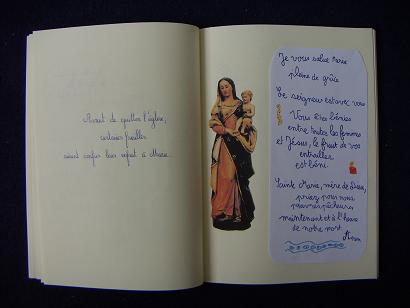 Avant de quitter l'église,
certaines familles
aiment confier leur enfant à Marie...
Je vous salue Marie
pleine de grâce
Le seigneur est avec vous
Vous êtes bénies
entre toutes les femmes
et Jésus, le fruit de vos
entrailles
est béni.
Sainte Marie, mère de Dieu,
priez pour nous
pauvres pécheurs
maintenant et à l'heure
de notre mort